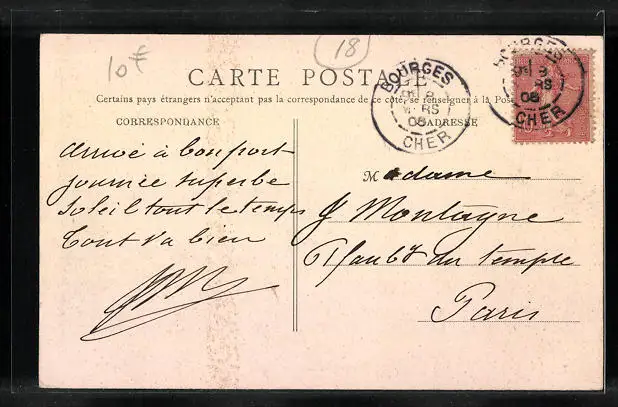 10€
18
CARTE POSTA
Certains pays étrangers n'acceptant pas la correspondance de ce côté, se renseigner à la Pos
CORRESPONDANCE
ADRESSE
BOURGES
RS
08
CHER
BOURGES
RS
08
CHER
Arrivé à bon port
journée superbe
Soleil tout le temps
Tout va bien
Madame
Montaigne
61 faubg du temple
Paris